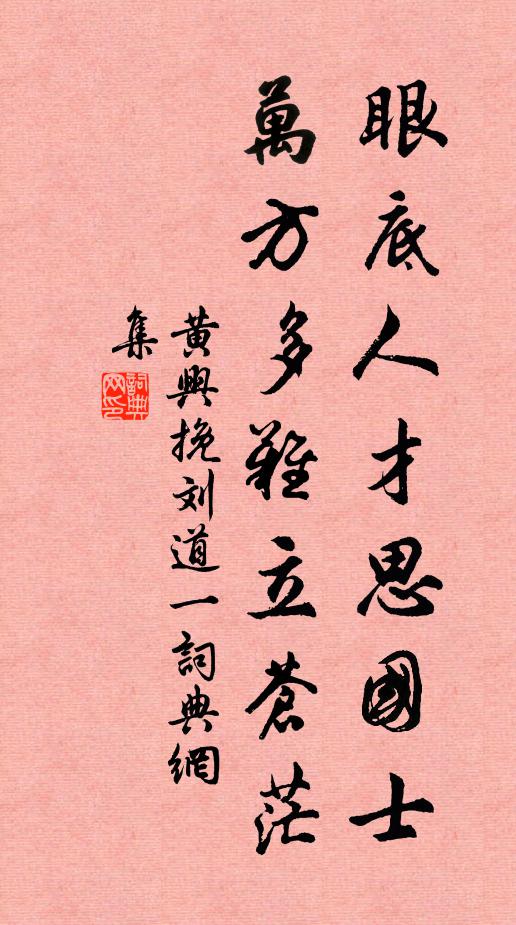 眼底人才思國士
萬方多難立蒼茫
黃興挽刘道一詞典網
集
詞典網印